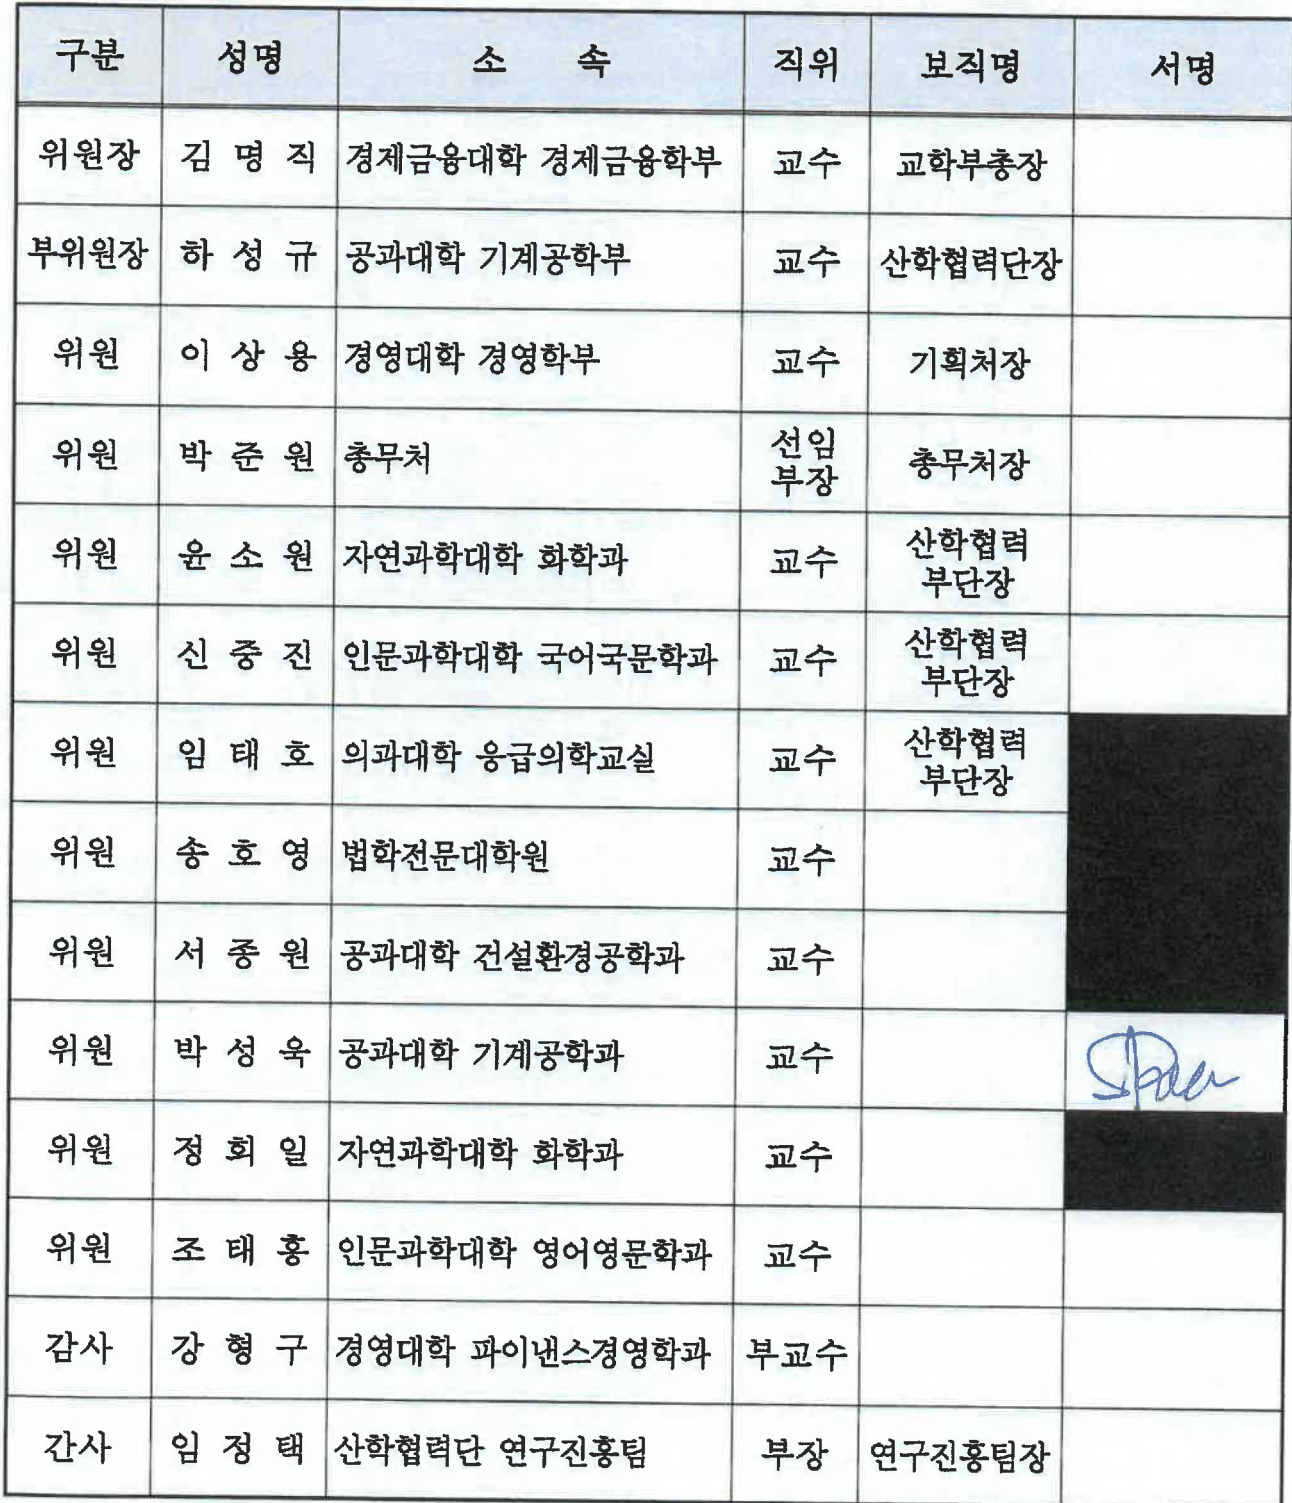 구분 성명 소 속 직위 보직명 서명
위원장 김 명 직 경제금융대학 경제금융학부 교수 교학부총장
부위원장 하 성 규 공과대학 기계공학부 교수 산학협력단장
위원 이 상 용 경영대학 경영학부 교수 기획처장
위원 박 준 원 총무처 선임 부장 총무처장
위원 윤 소 원 자연과학대학 화학과 교수 산학협력 부단장
위원 신 중 진 인문과학대학 국어국문학과 교수 산학협력 부단장
위원 임 태 호 의과대학 응급의학교실 교수 산학협력 부단장
위원 송 호 영 법학전문대학원 교수
위원 서 종 원 공과대학 건설환경공학과 교수
위원 박 성 욱 공과대학 기계공학과 교수
위원 정 회 일 자연과학대학 화학과 교수
위원 조 태 홍 인문과학대학 영어영문학과 교수
감사 강 형 구 경영대학 파이낸스경영학과 부교수
간사 임 정 택 산학협력단 연구진흥팀 부장 연구진흥팀장